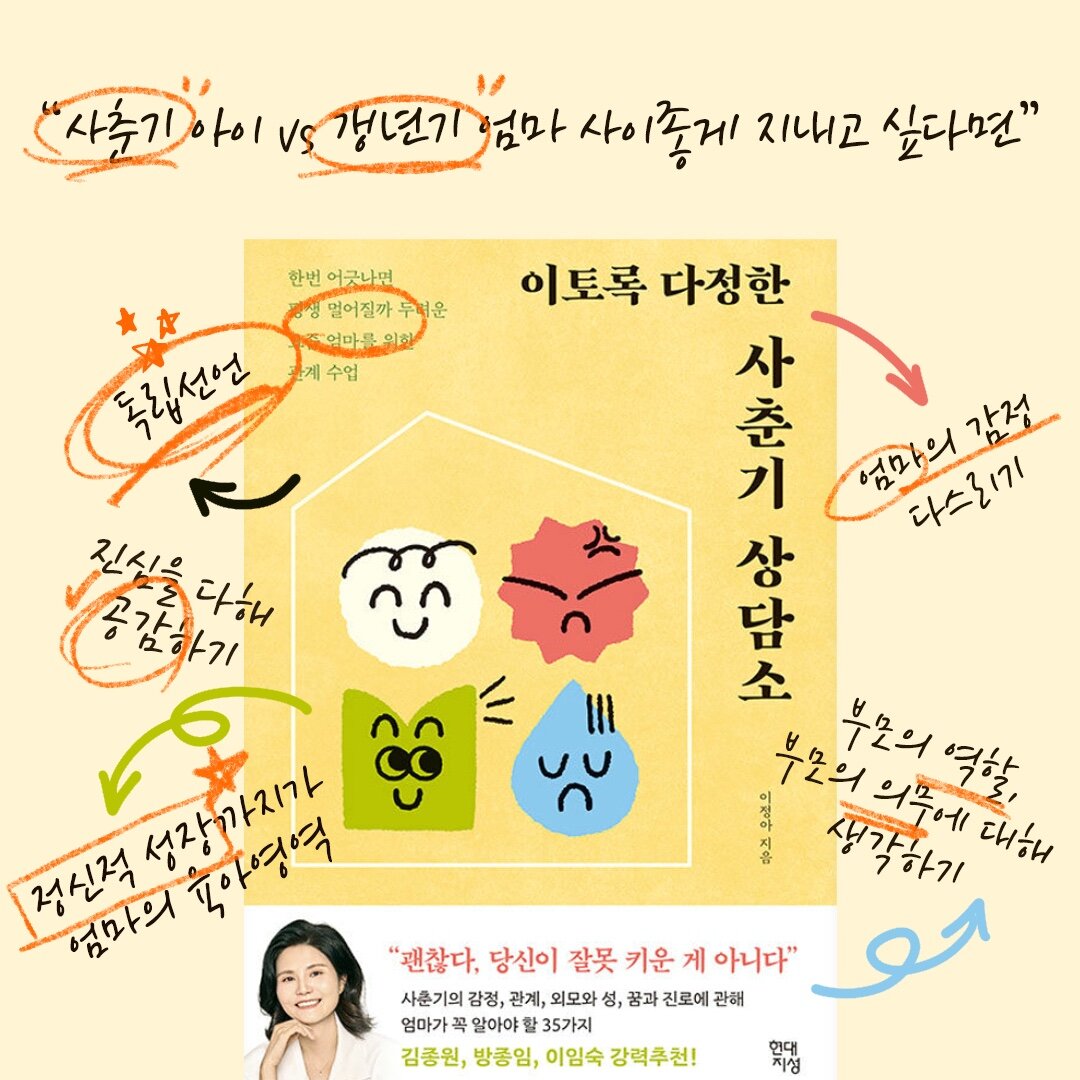 “사춘기 아이 vs 갱년기 엄마 사이좋게 지내고 싶다면”
한번 어긋나면
평생 멀어질까 두려운
요즘 엄마를 위한
관계 수업
이토록 다정한
사춘기 상담소
독립선언
엄마의 감정
다스리기
진심을 다해
공감하기
부모의 역할,
부모의 의무에 대해
생각하기
이정아 지음
정신적 성장까지가
엄마의 육아영역
“괜찮다, 당신이 잘못 키운 게 아니다”
사춘기의 감정, 관계, 외모와 성, 꿈과 진로에 관해
엄마가 꼭 알아야 할 35가지
김종원, 방종임, 이임숙 강력추천!
현대
지성